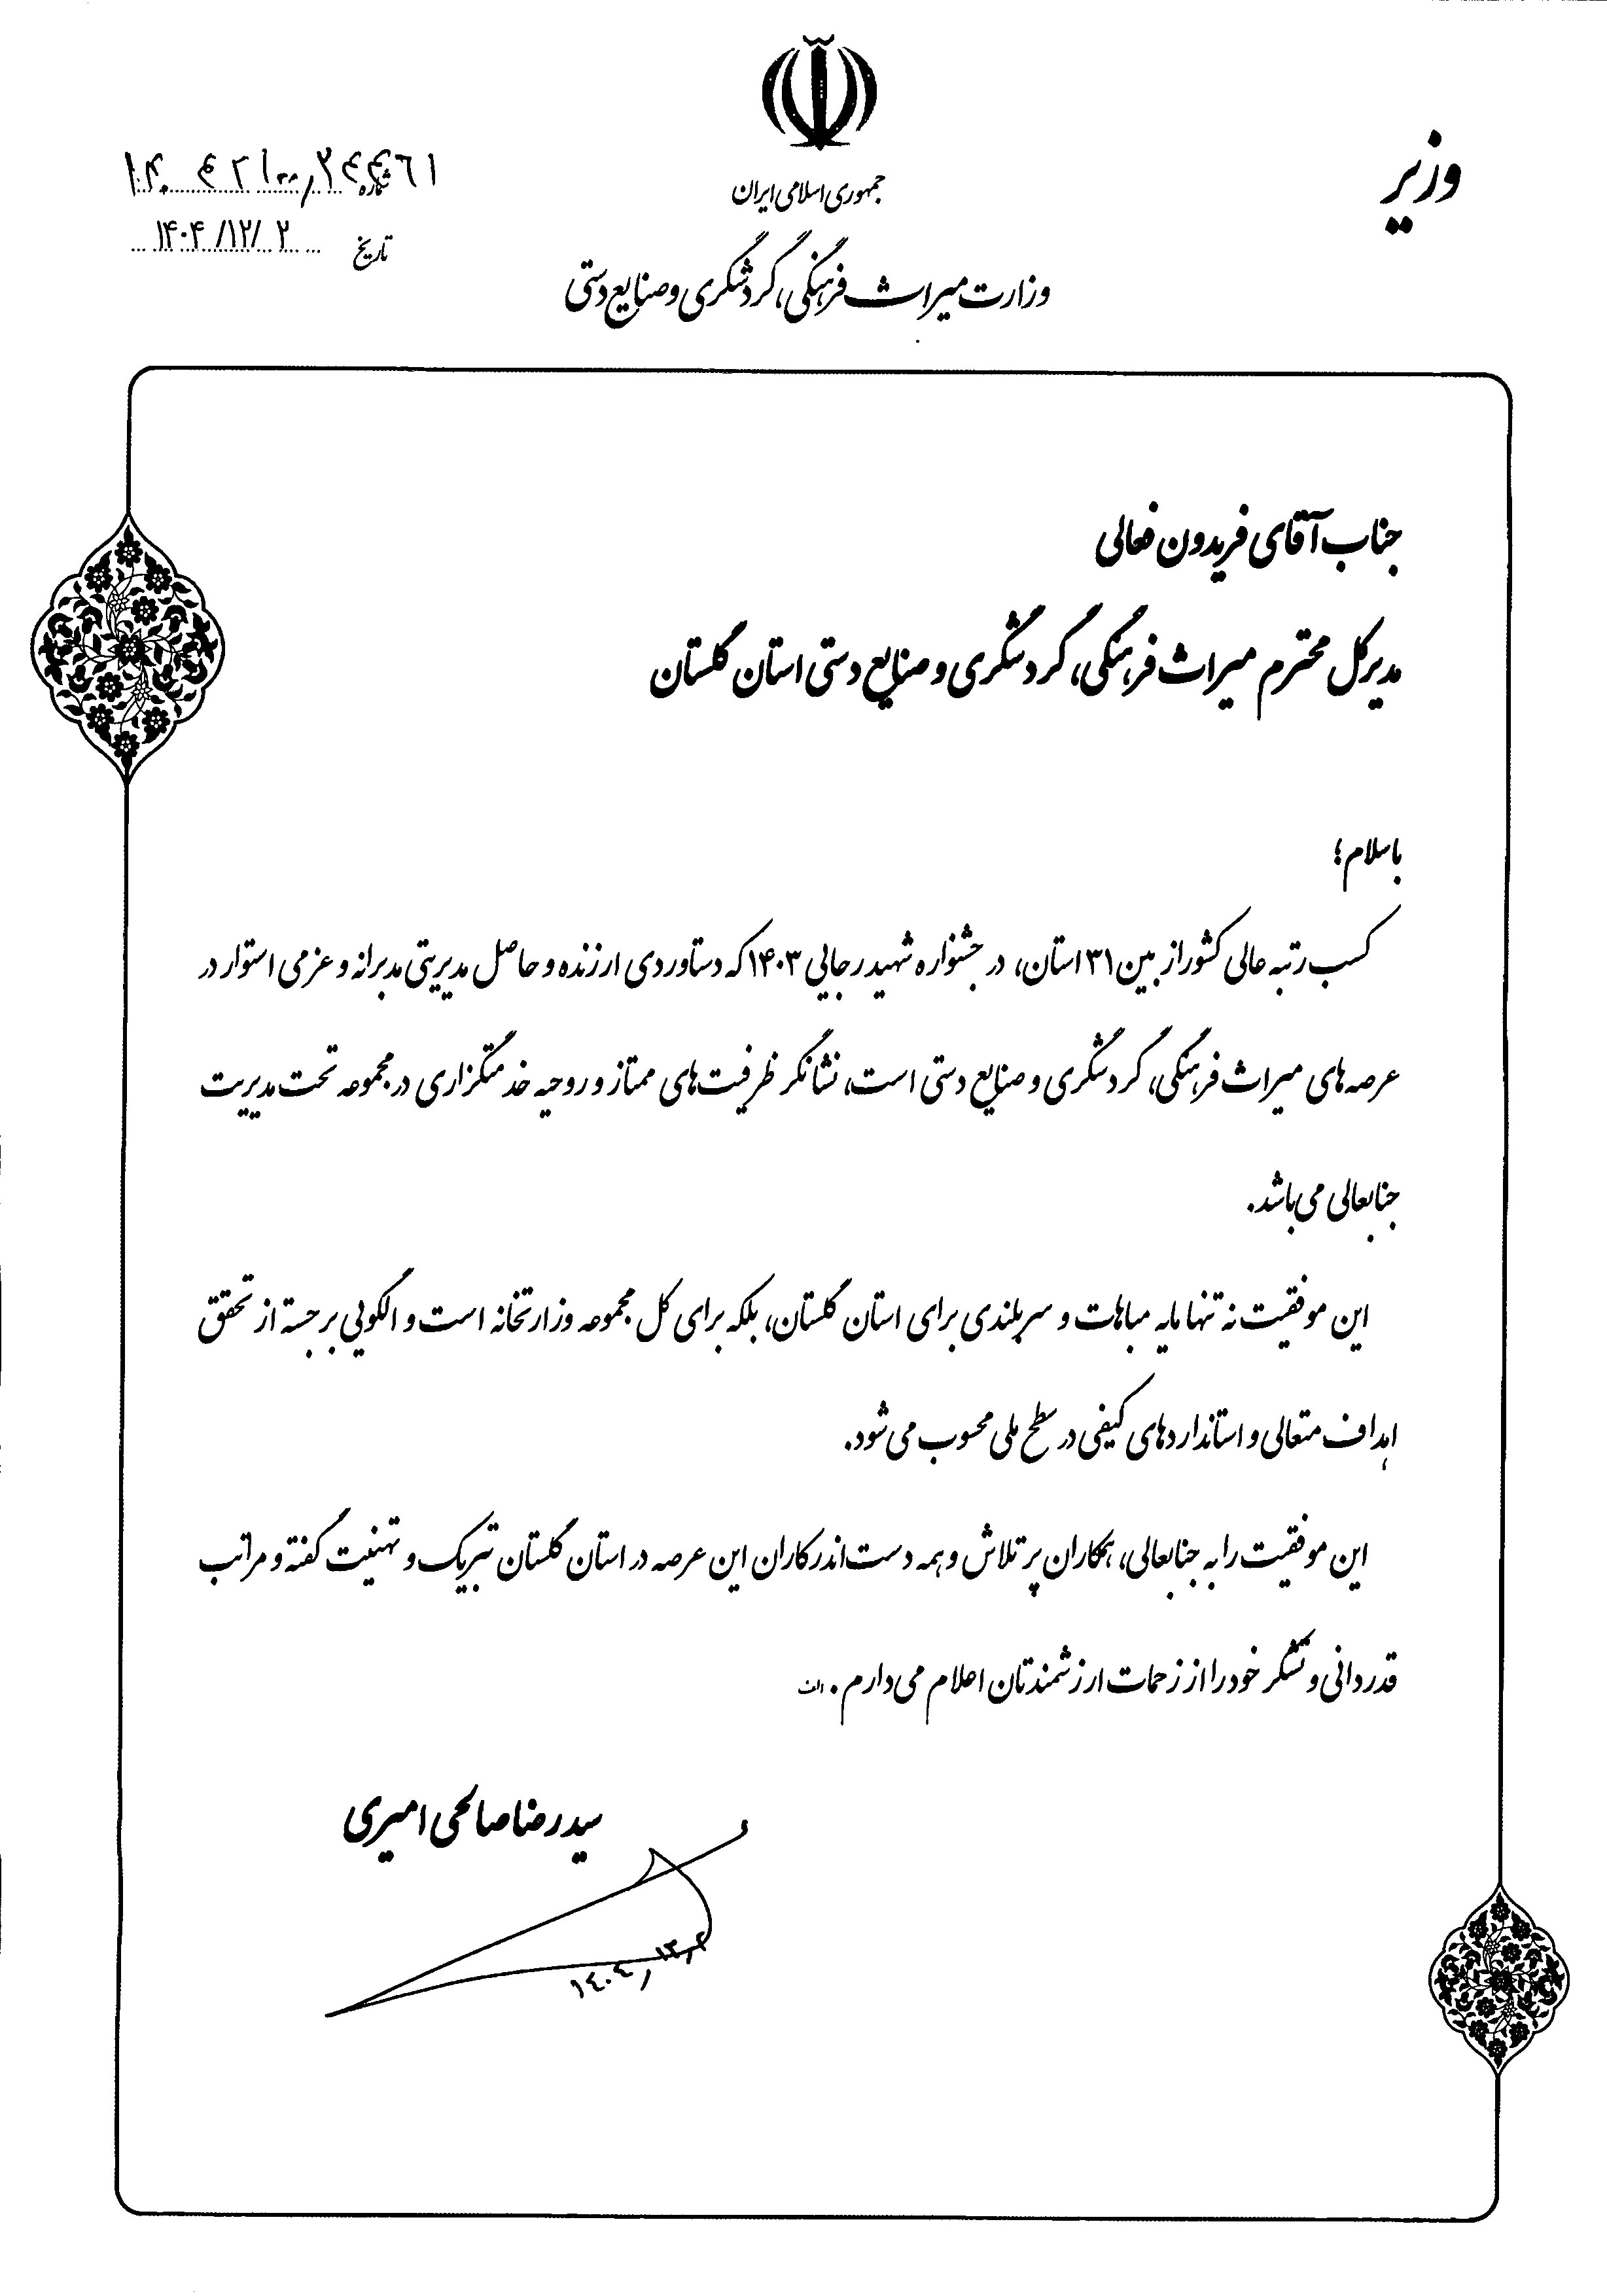 جمهوری اسلامی ایران
وزارت میراث فرهنگی، گردشگری و صنایع دستی
وزیر
شماره
تاریخ ۱۴۰۴/۱۲/۲
جناب آقای فریدون فعالی
مدیرکل محترم میراث فرهنگی، گردشگری و صنایع دستی استان گلستان
باسلام؛
کسب رتبه عالی کشور از بین ۳۱ استان، در جشنواره شهید رجایی ۱۴۰۳ که دستاوردی ارزنده و حاصل مدیریتی مدبرانه و عزمی استوار در
عرصه‌های میراث فرهنگی، گردشگری و صنایع دستی است، نشانگر ظرفیت‌های ممتاز و روحیه خدمتگزاری در مجموعه تحت مدیریت
جنابعالی می‌باشد.
این موفقیت نه تنها مایه مباهات و سربلندی برای استان گلستان، بلکه برای کل مجموعه وزارتخانه است و الگویی برجسته از تحقق
اهداف متعالی و استانداردهای کیفی در سطح ملی محسوب می‌شود.
این موفقیت را به جنابعالی، همکاران پرتلاش و همه دست‌اندرکاران این عرصه در استان گلستان تبریک و تهنیت گفته و مراتب
قدردانی و تشکر خود را از زحمات ارزشمندتان اعلام می‌دارم.
سیدرضا صالحی امیری